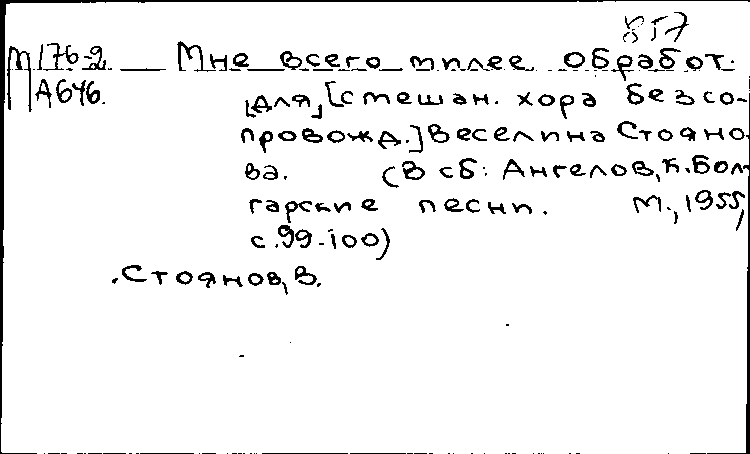 857
М176-2 Мне всего милее обработ.
А646. [для] [смешан. хора без со-
провожд.] Веселина Стояно-
ва. (В сб: Ангелов, К. Бол
гарские песни. М., 1955,
с. 99-100)
Стоянов, В.